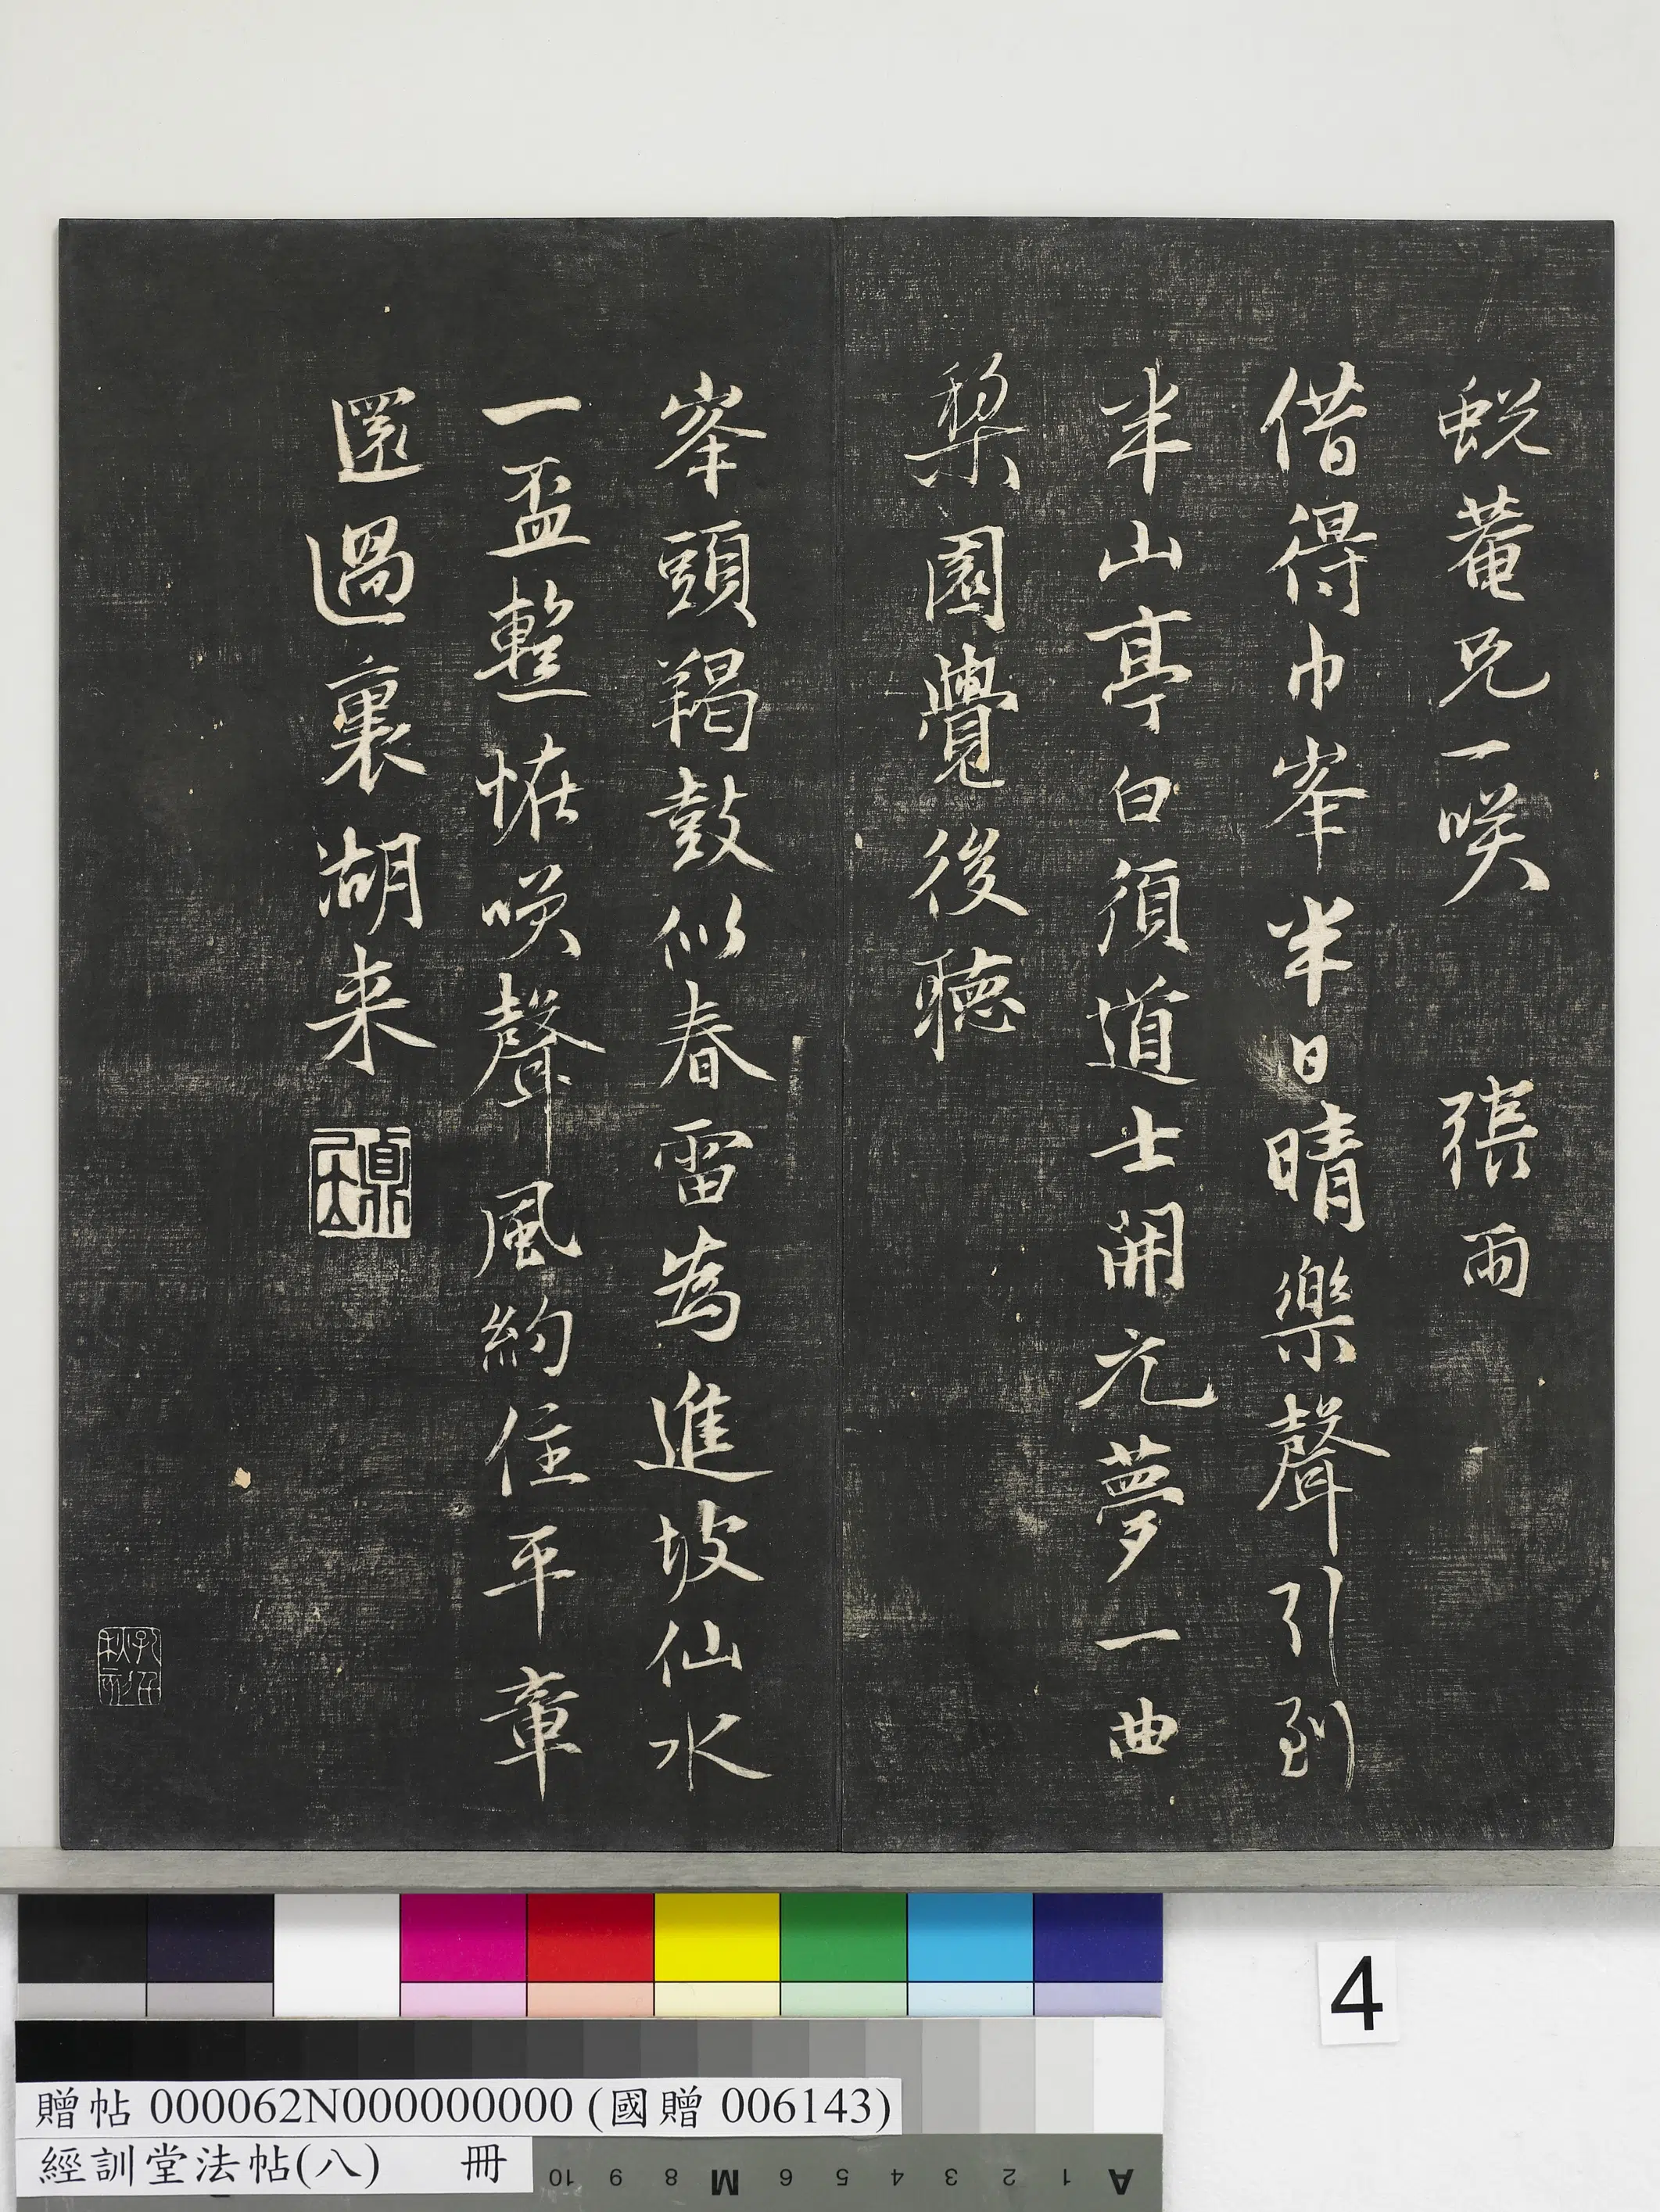 蛻菴兄一咲　張雨
借得巾峯半日晴樂聲引到
半山亭白須道士開元夢一曲
梨園覺後聽
峯頭羯鼓似春雷為進坡仙水
一盃整怪咲聲風約住平章
還過裏湖来
4
贈帖 000062N000000000 (國贈 006143)
經訓堂法帖(八)　冊
10 9 8 M 6 5 4 3 2 1 A